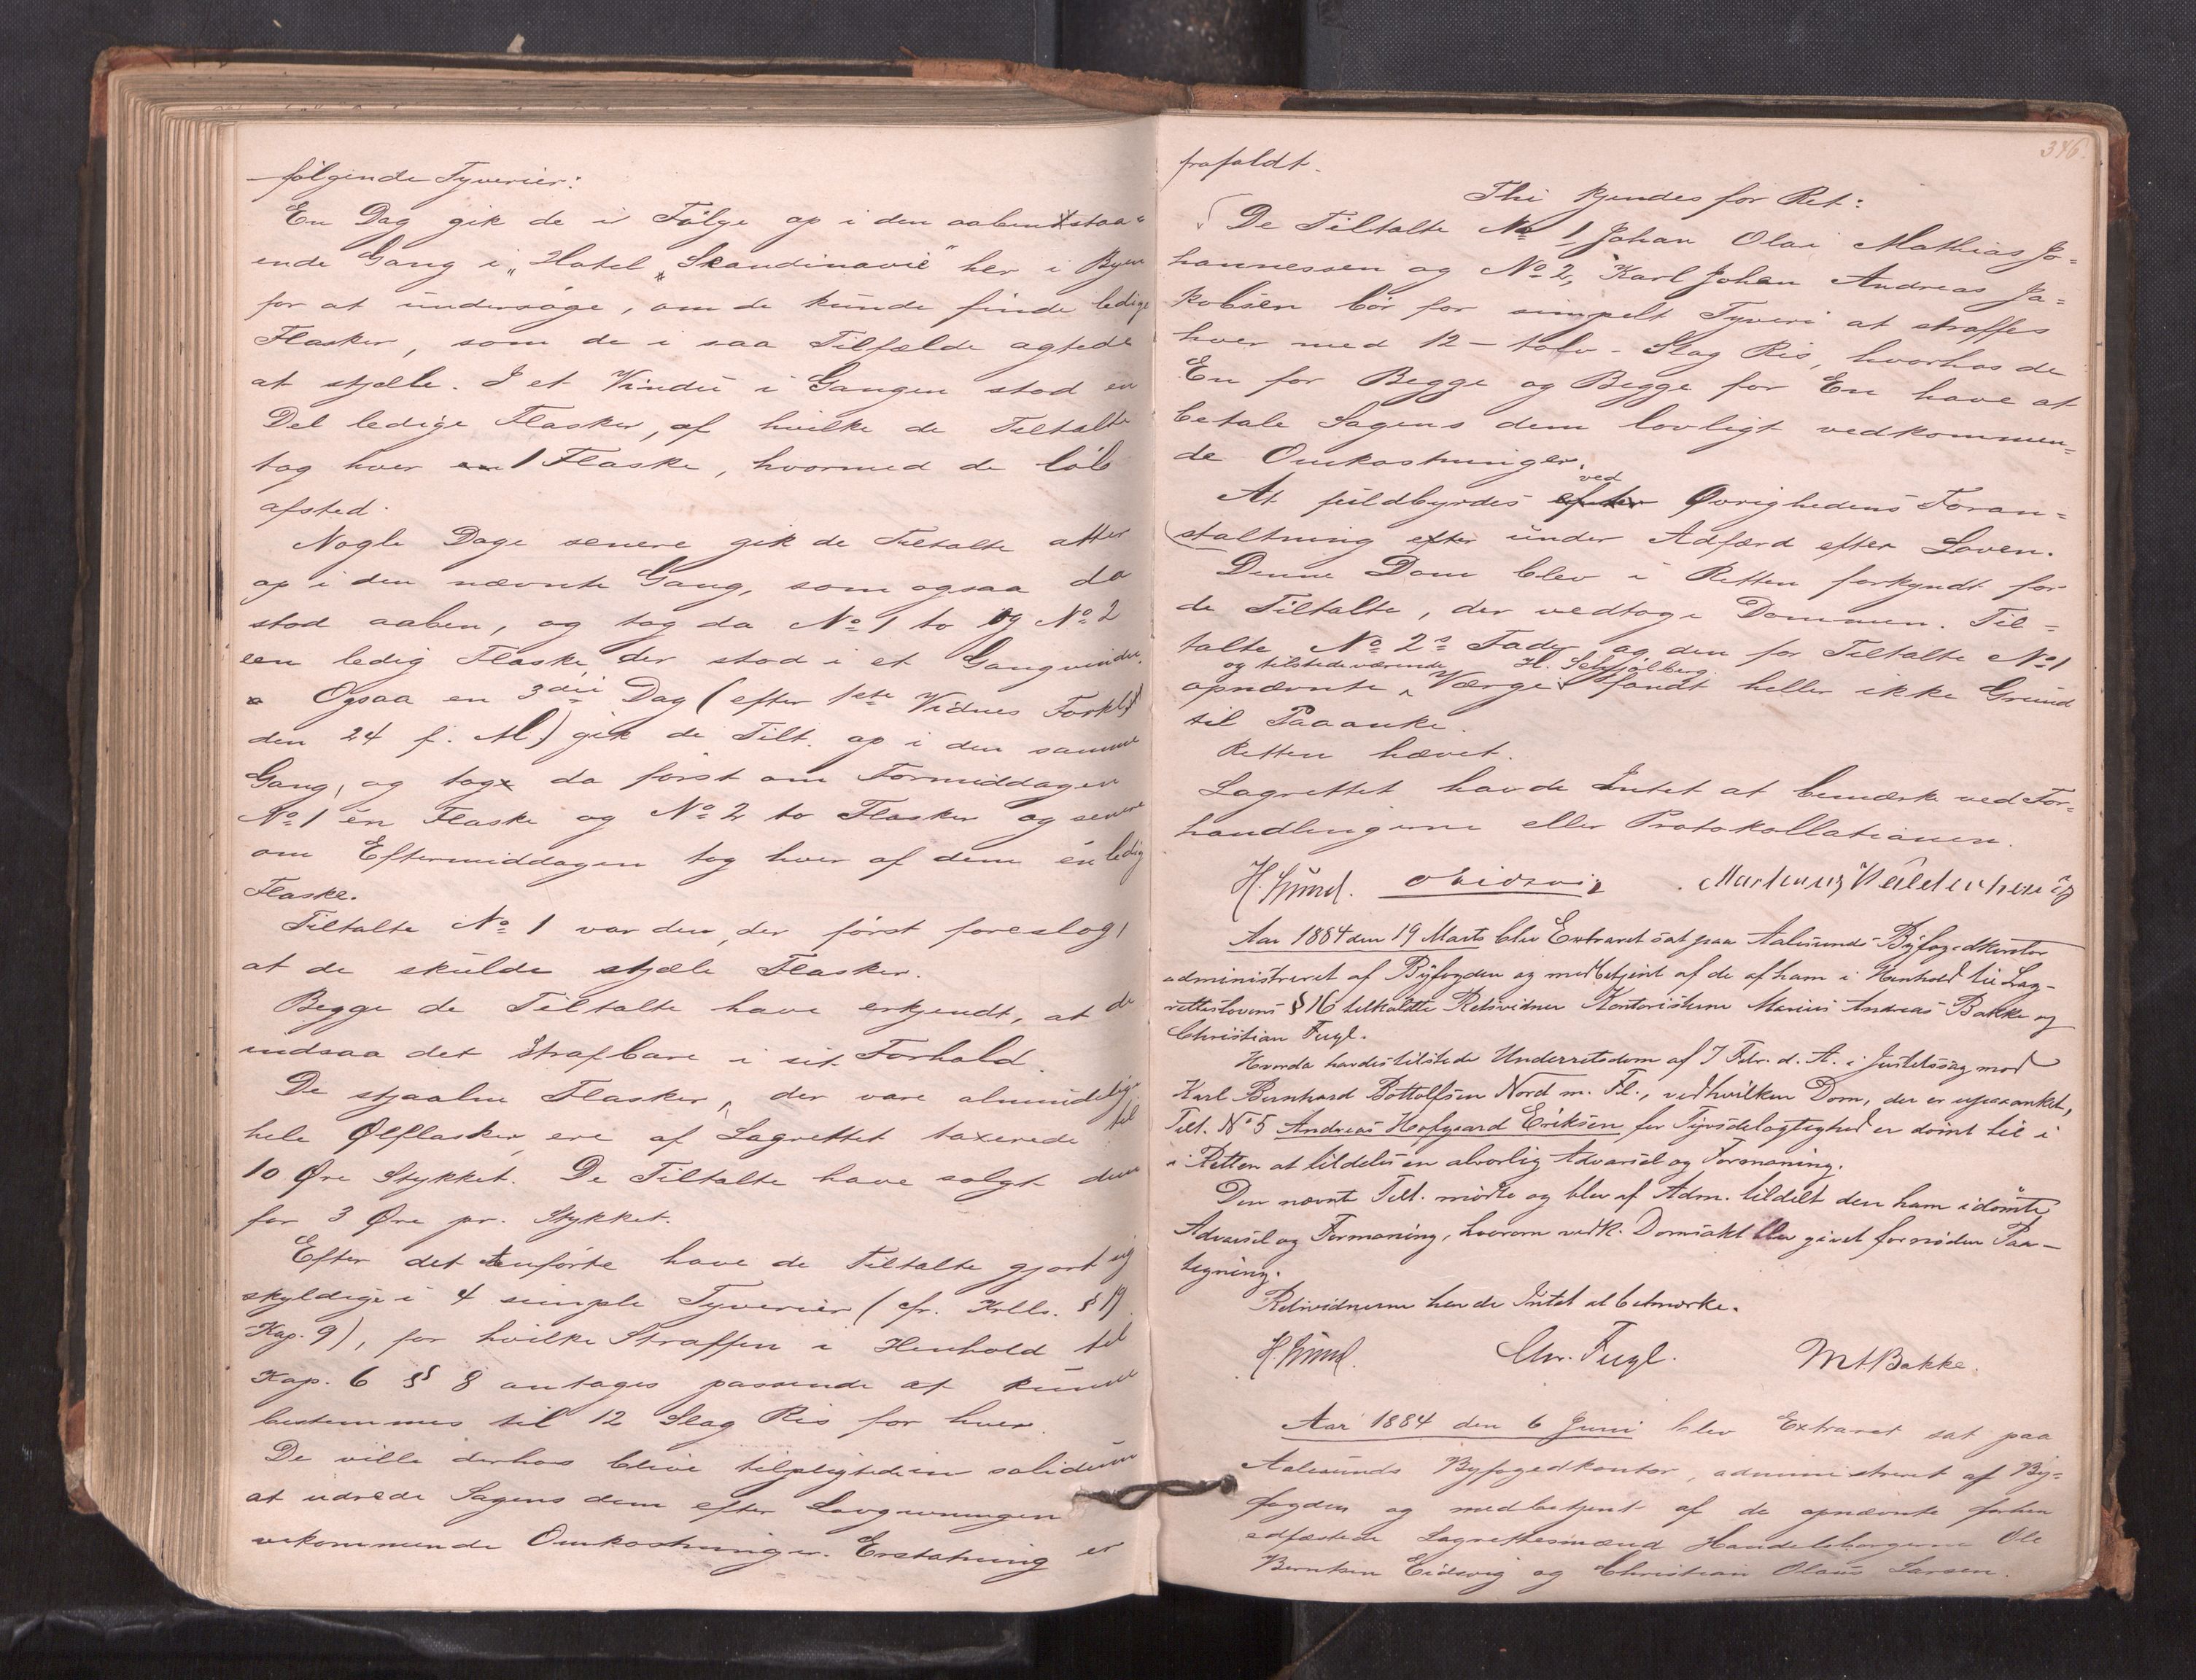 følgende Tyverier:
En Dag gik de i Følge op i den aabentstaa=
ende Gang i „Hotel „Skandinavie" her i Byen
for at undersøge, om de kunde finde ledige
Flasker, som de i saa Tilfælde agtede
at stjæle. I et Vindu i Gangen stod en
Del ledige Flasker, af hvilke de Tiltalte
tog hver en 1 Flaske, hvormed de løb
afsted.
Nogle Dage senere gik de Tiltalte atter
op i den nævnte Gang, som ogsaa da
stod aaben, og tog da No 1 to og No 2
een ledig Flaske der stod i et Gangvindu.
Ogsaa en 3die Dag (efter 1ste Vidnes Forkl.
den 24 f. M.) gik de Tilt. op i den samme
Gang, og tog da først om Formiddagen
No 1 én Flaske og No 2 to Flasker og senere
om Eftermiddagen tog hver af dem én ledig
Flaske.
Tiltalte No 1 var den, der først foreslog,
at de skulde stjæle Flasker.
Begge de Tiltalte have erkjendt, at de
indsaa det strafbare i sit Forhold.
De stjaalne Flasker, der vare almindelige
hele Ølflasker, ere af Lagrettet taxerede til
10 Øre Stykket. De Tiltalte have solgt dem
for 3 Øre pr. Stykket.
Efter det anførte have de Tiltalte gjort sig
skyldige i 4 simple Tyverier (cfr. Krlls. § 19
Kap. 9), for hvilke Straffen i Henhold til
Kap. 6 § 8 antages passende at kunne
bestemmes til 12 Slag Ris for hver.
De ville derhos blive tilpligtede in solidum
at udrede Sagens dem efter Lovgivningen
vekommende Omkostninger. Erstatning er
346.
frafaldt.
Thi kjendes for Ret:
De Tiltalte No 1, Johan Olai Mathias Jo=
hannessen og No 2, Karl Johan Andreas Ja=
kobsen bør for simpelt Tyveri at straffes
hver med 12 – tolv – Slag Ris, hvorhos de
En for Begge og Begge for En have at
betale Sagens dem lovligt vedkommen=
de Omkostninger.
ved
At fuldbyrdes efter Øvrighedens Foran=
staltning efter under Adfærd efter Loven.
Denne Dom blev i Retten forkyndt for
de Tiltalte, der vedtoge Dommen. Til=
talte No 2s Fader og den for Tiltalte No 1
og tilstedeværende H. Schjølberg
opnævnte Værge fandt heller ikke Grund
til Paaanke.
Retten hævet.
Lagrettet havde Intet at bemærke ved For=
handlingerne eller Protokollationen.
H. Lund. O Eidsvig
Aar 1884 den 19 Marts blev Extraret sat paa Aalesunds Byfogedkontor
administreret af Byfogden og medbetjent af de af ham i Henhold til Lag-
retteslovens § 16 tilkaldte Retsvidner Kontoristerne Marius Andreas Bakke og
Christian Fugl.
Hvorda havdes tilstede Underretsdom af 7 Febr. d. A. i Justitssag mod
Karl Bernhard Bottolfsen Nord m. Fl., ved hvilken Dom, der er upaaanket,
Tilt. No 5 Andreas Hofgaard Eriksen for Tyvsdelagtighed er dømt til i
i Retten at tildeles en alvorlig Advarsel og Formaning.
Den nævnte Tilt. mødte og blev af Adm. tildelt den ham idømte
Advarsel og Formaning, hvorom vedk. Domsakt blev givet fornøden Paa-
tegning.
Retsvidnerne havde Intet at bemærke.
H. Lund. Chr. Fugl. M A Bakke.
Aar 1884 den 6 Juni blev Extraret sat paa
Aalesunds Byfogedkontor, administreret af By=
fogden og medbetjent af de opnævnte forhen
edfæstede Lagrettesmænd Handelsborgerne Ole
Berntsen Eidsvig og Christian Olaus Larsen.